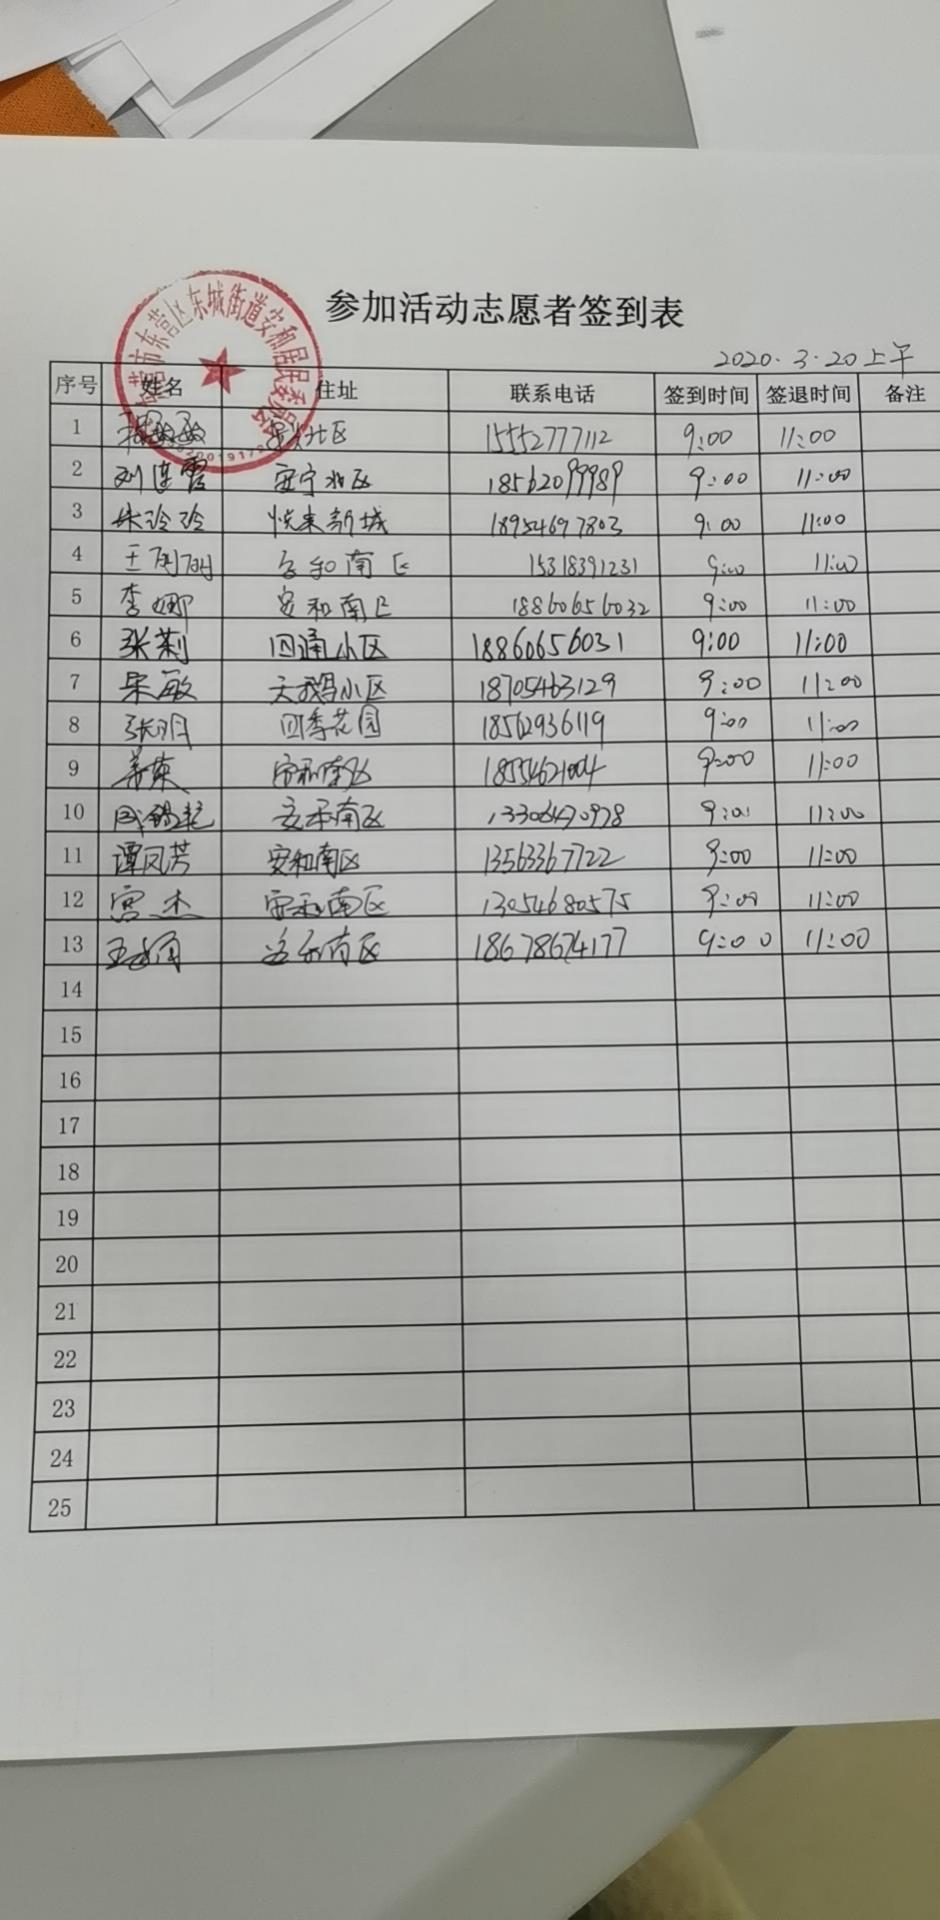 参加活动志愿者签到表
2020.3.20上午
序号 姓名 住址 联系电话 签到时间 签退时间 备注
1 北区 15552777112 9:00 11:00
2 刘莲霞 安宁北区 18562099989 9:00 11:00
3 朱玲玲 悦来新城 18954697803 9:00 11:00
4 王 安和南区 15318391231 9:00 11:00
5 李娜 安和南区 18860656032 9:00 11:00
6 张莉 四通小区 18860656031 9:00 11:00
7 敏 天鹅小区 18705463129 9:00 11:00
8 张明 四季花园 18562936119 9:00 11:00
9 安和南区 18554621004 9:00 11:00
10 安和南区 13306470978 9:00 11:00
11 谭凤芳 安和南区 13563367722 9:00 11:00
12 宫杰 安和南区 13054680575 9:00 11:00
13 安和南区 18678674177 9:00 11:00
14
15
16
17
18
19
20
21
22
23
24
25
营市东营区东城街道安和居民委员会